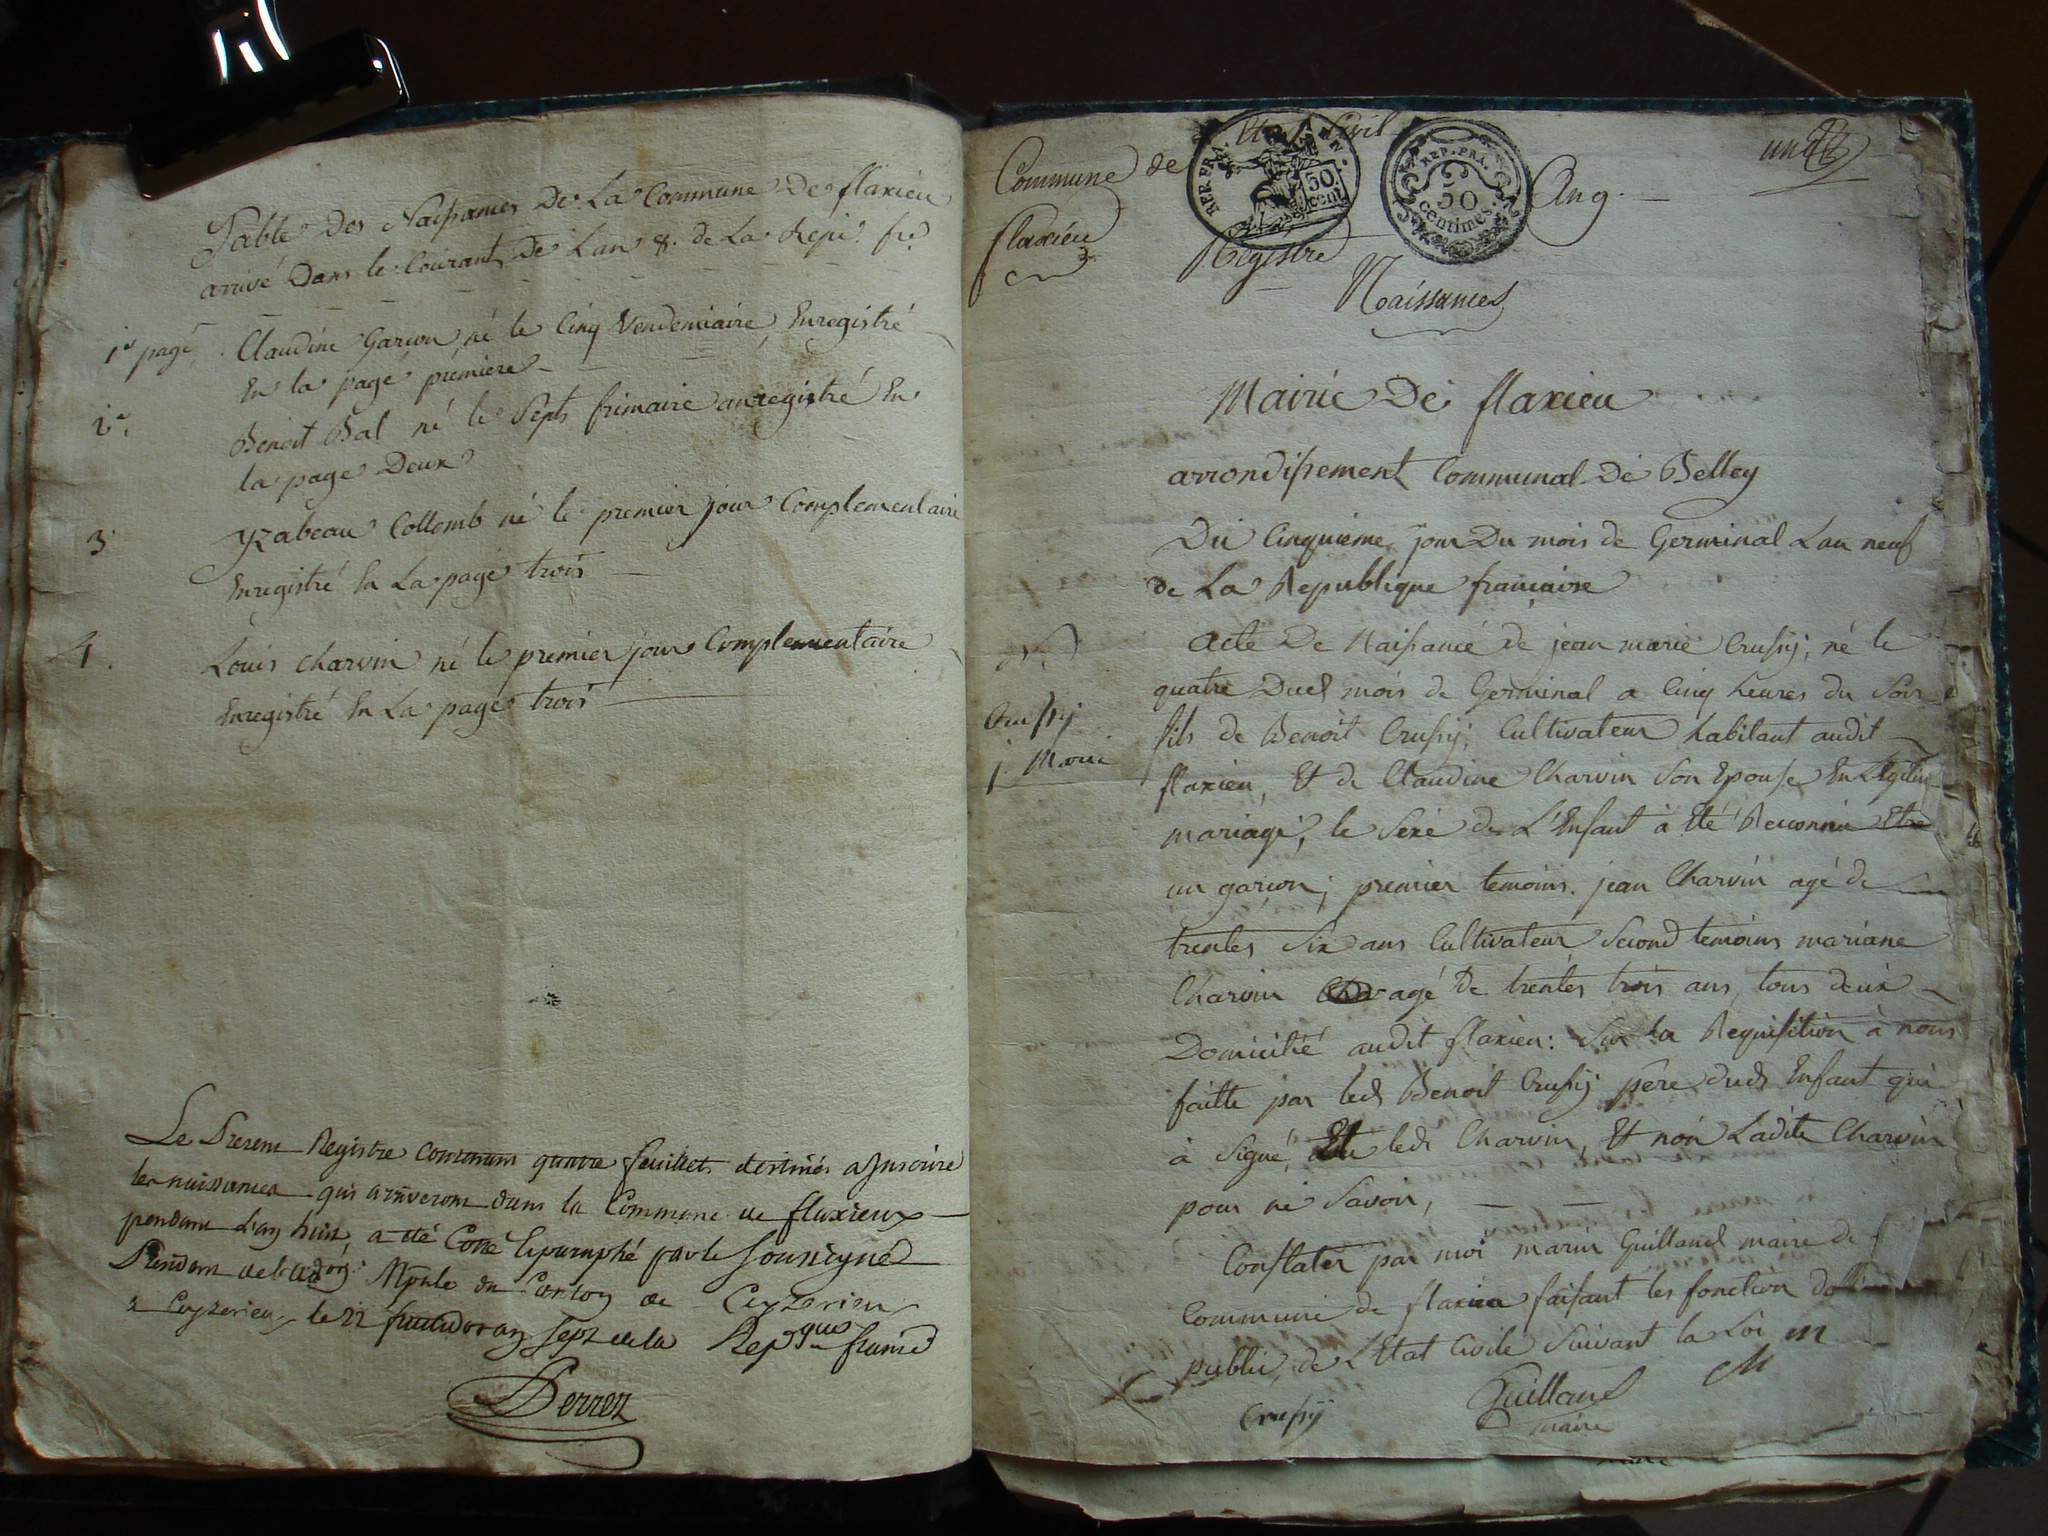 Table Des Naissances De La Commune De flaxieu
arrivé Dans le Courant De Lan 8. de La Repu. fre
1er page Claudine Garcon né le Cinq Vendemiaire Enregistré
En la page premiere
2e. Benoit Bal né le Septs frimaire anregistré En
la page Deux
3 Yzabeau Collomb né le premier jour Complementaire
Enregistré En La page trois
4. Louis charvin né le premier jour Complementaire
Enregistré En La page trois
Le Present Registre Contenant quatre feuillets destinés a Inscrire
les naissances qui arriveront dans la Commune de flaxieux
pendant L'an huit a eté Cotté Et paraphé par le Soussigné
President de l'adon Mple du Canton de Ceyzerieu
a Ceyzerieu le 22 fructidor an Sept de la Repque franse
Perret
Etat Civil
Commune de
flaxieu
REP. FRA.
50
cent.
REP. FRA.
50
centimes
An 9.
un
Registre
Naissances
Mairie De flaxieu
arrondissement Communal De Belley
Du Cinquieme jour Du mois de Germinal Lan neuf
de La Republique francaise
Acte De Naissance de jean marie Crussy, né le
quatre Dud mois de Germinal a Cinq heures du Soir
Crussy
j. Marie
fils de Benoit Crussy, Cultivateur habitant audit
flaxieu, Et de Claudine Charvin Son Epouse En Legitime
mariage, le Sexe de L'Enfant à Eté Reconnu Etre
un garcon; premier temoins. jean Charvin agé de
trentes Six ans Cultivateur Second temoins mariane
Charvin agé de trentes trois ans, tous deux
Domicilié audit flaxieu: Sur La Requisition à nous
faitte par led Benoit Crussy pere dud Enfant qui
à Signé, led Charvin, Et non Ladite Charvin
pour ne Savoir,
Constater par moi marin Guilland maire de
Commune de flaxieu faisant les fonction
public de L'Etat Civile Suivant la Loi
Crussy
Guilland
maire